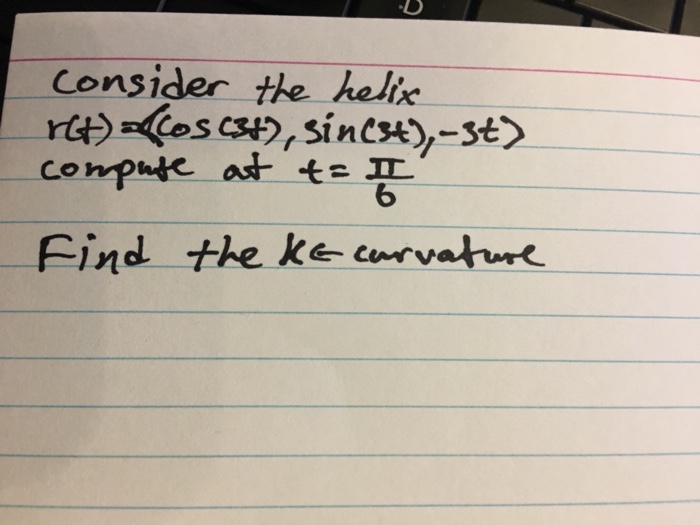 D
Consider the helix
r(t)=⟨cos(3t), sin(3t), -3t⟩
compute at t= π/6
Find the K← curvature